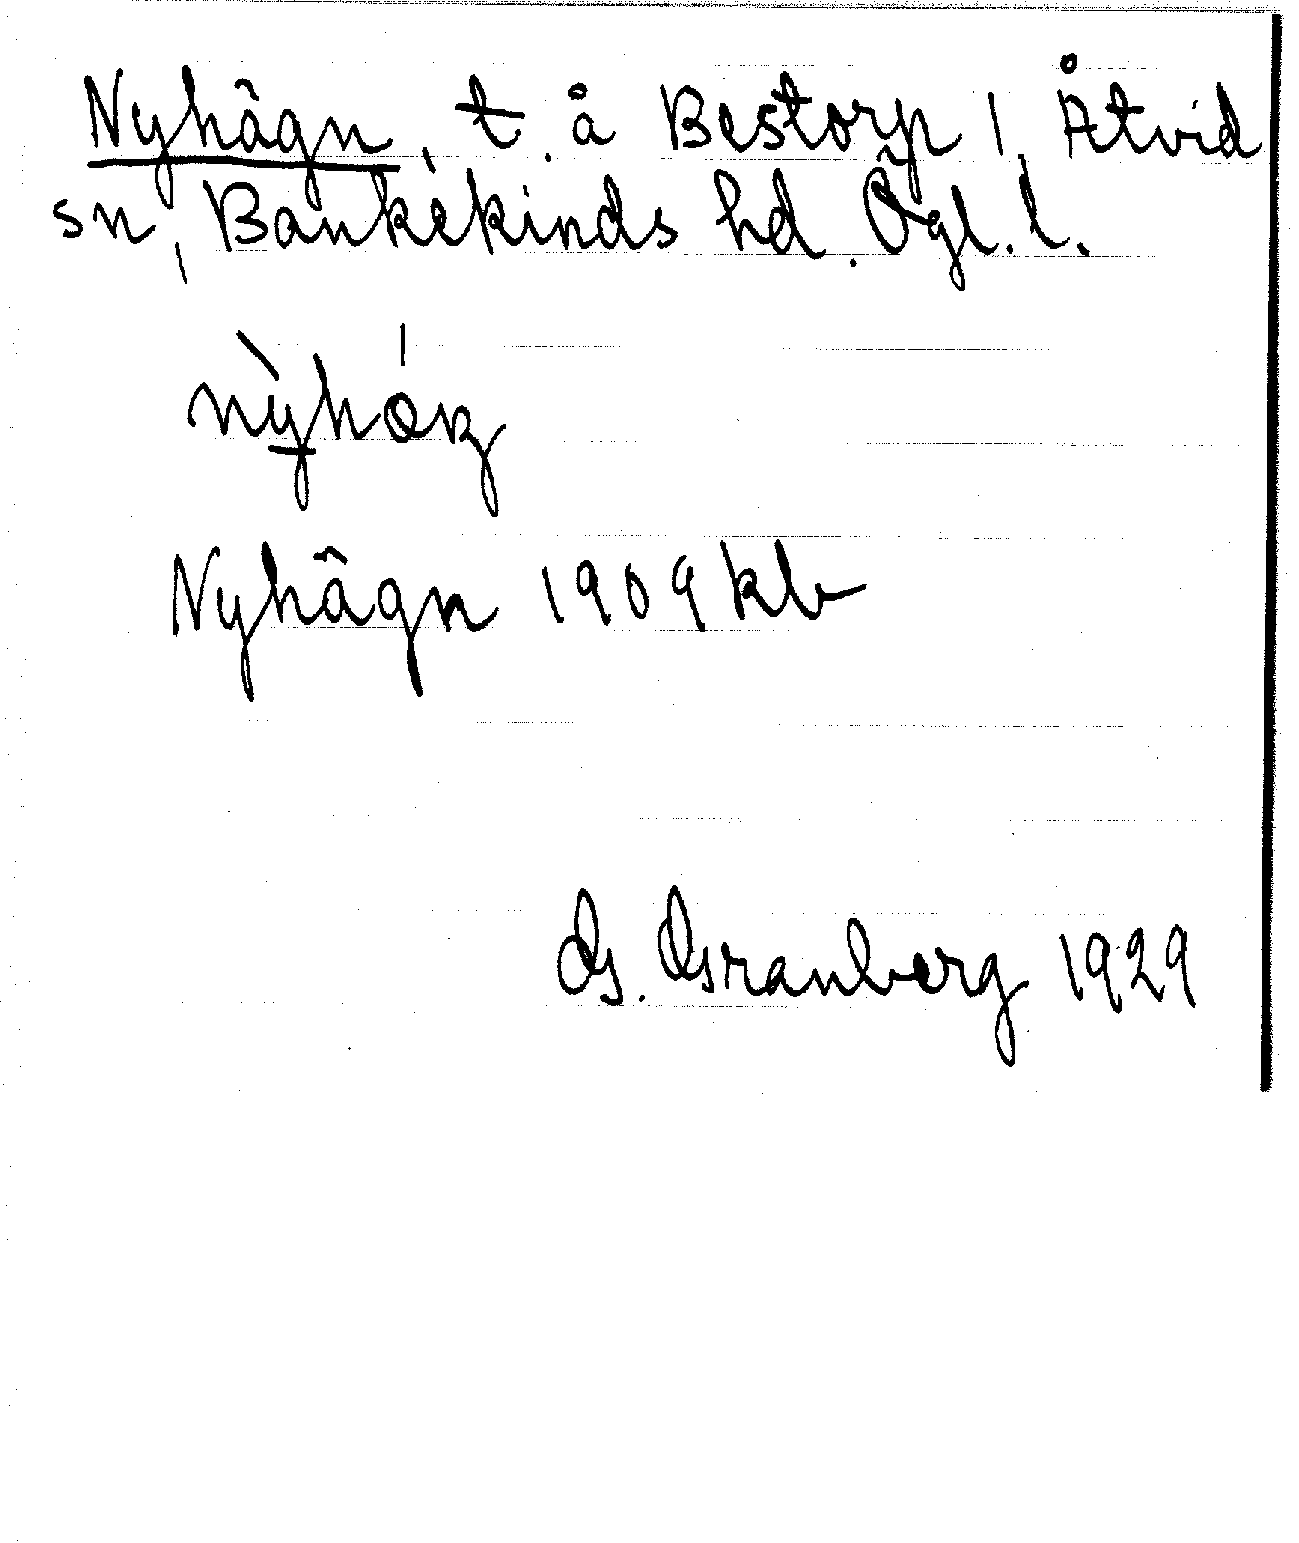 Nyhägn, t. å Bestorp 1, Åtvid
sn, Bankekinds hd. Ögl. l.
Nyhägn 1909 kb
G. Granberg 1929